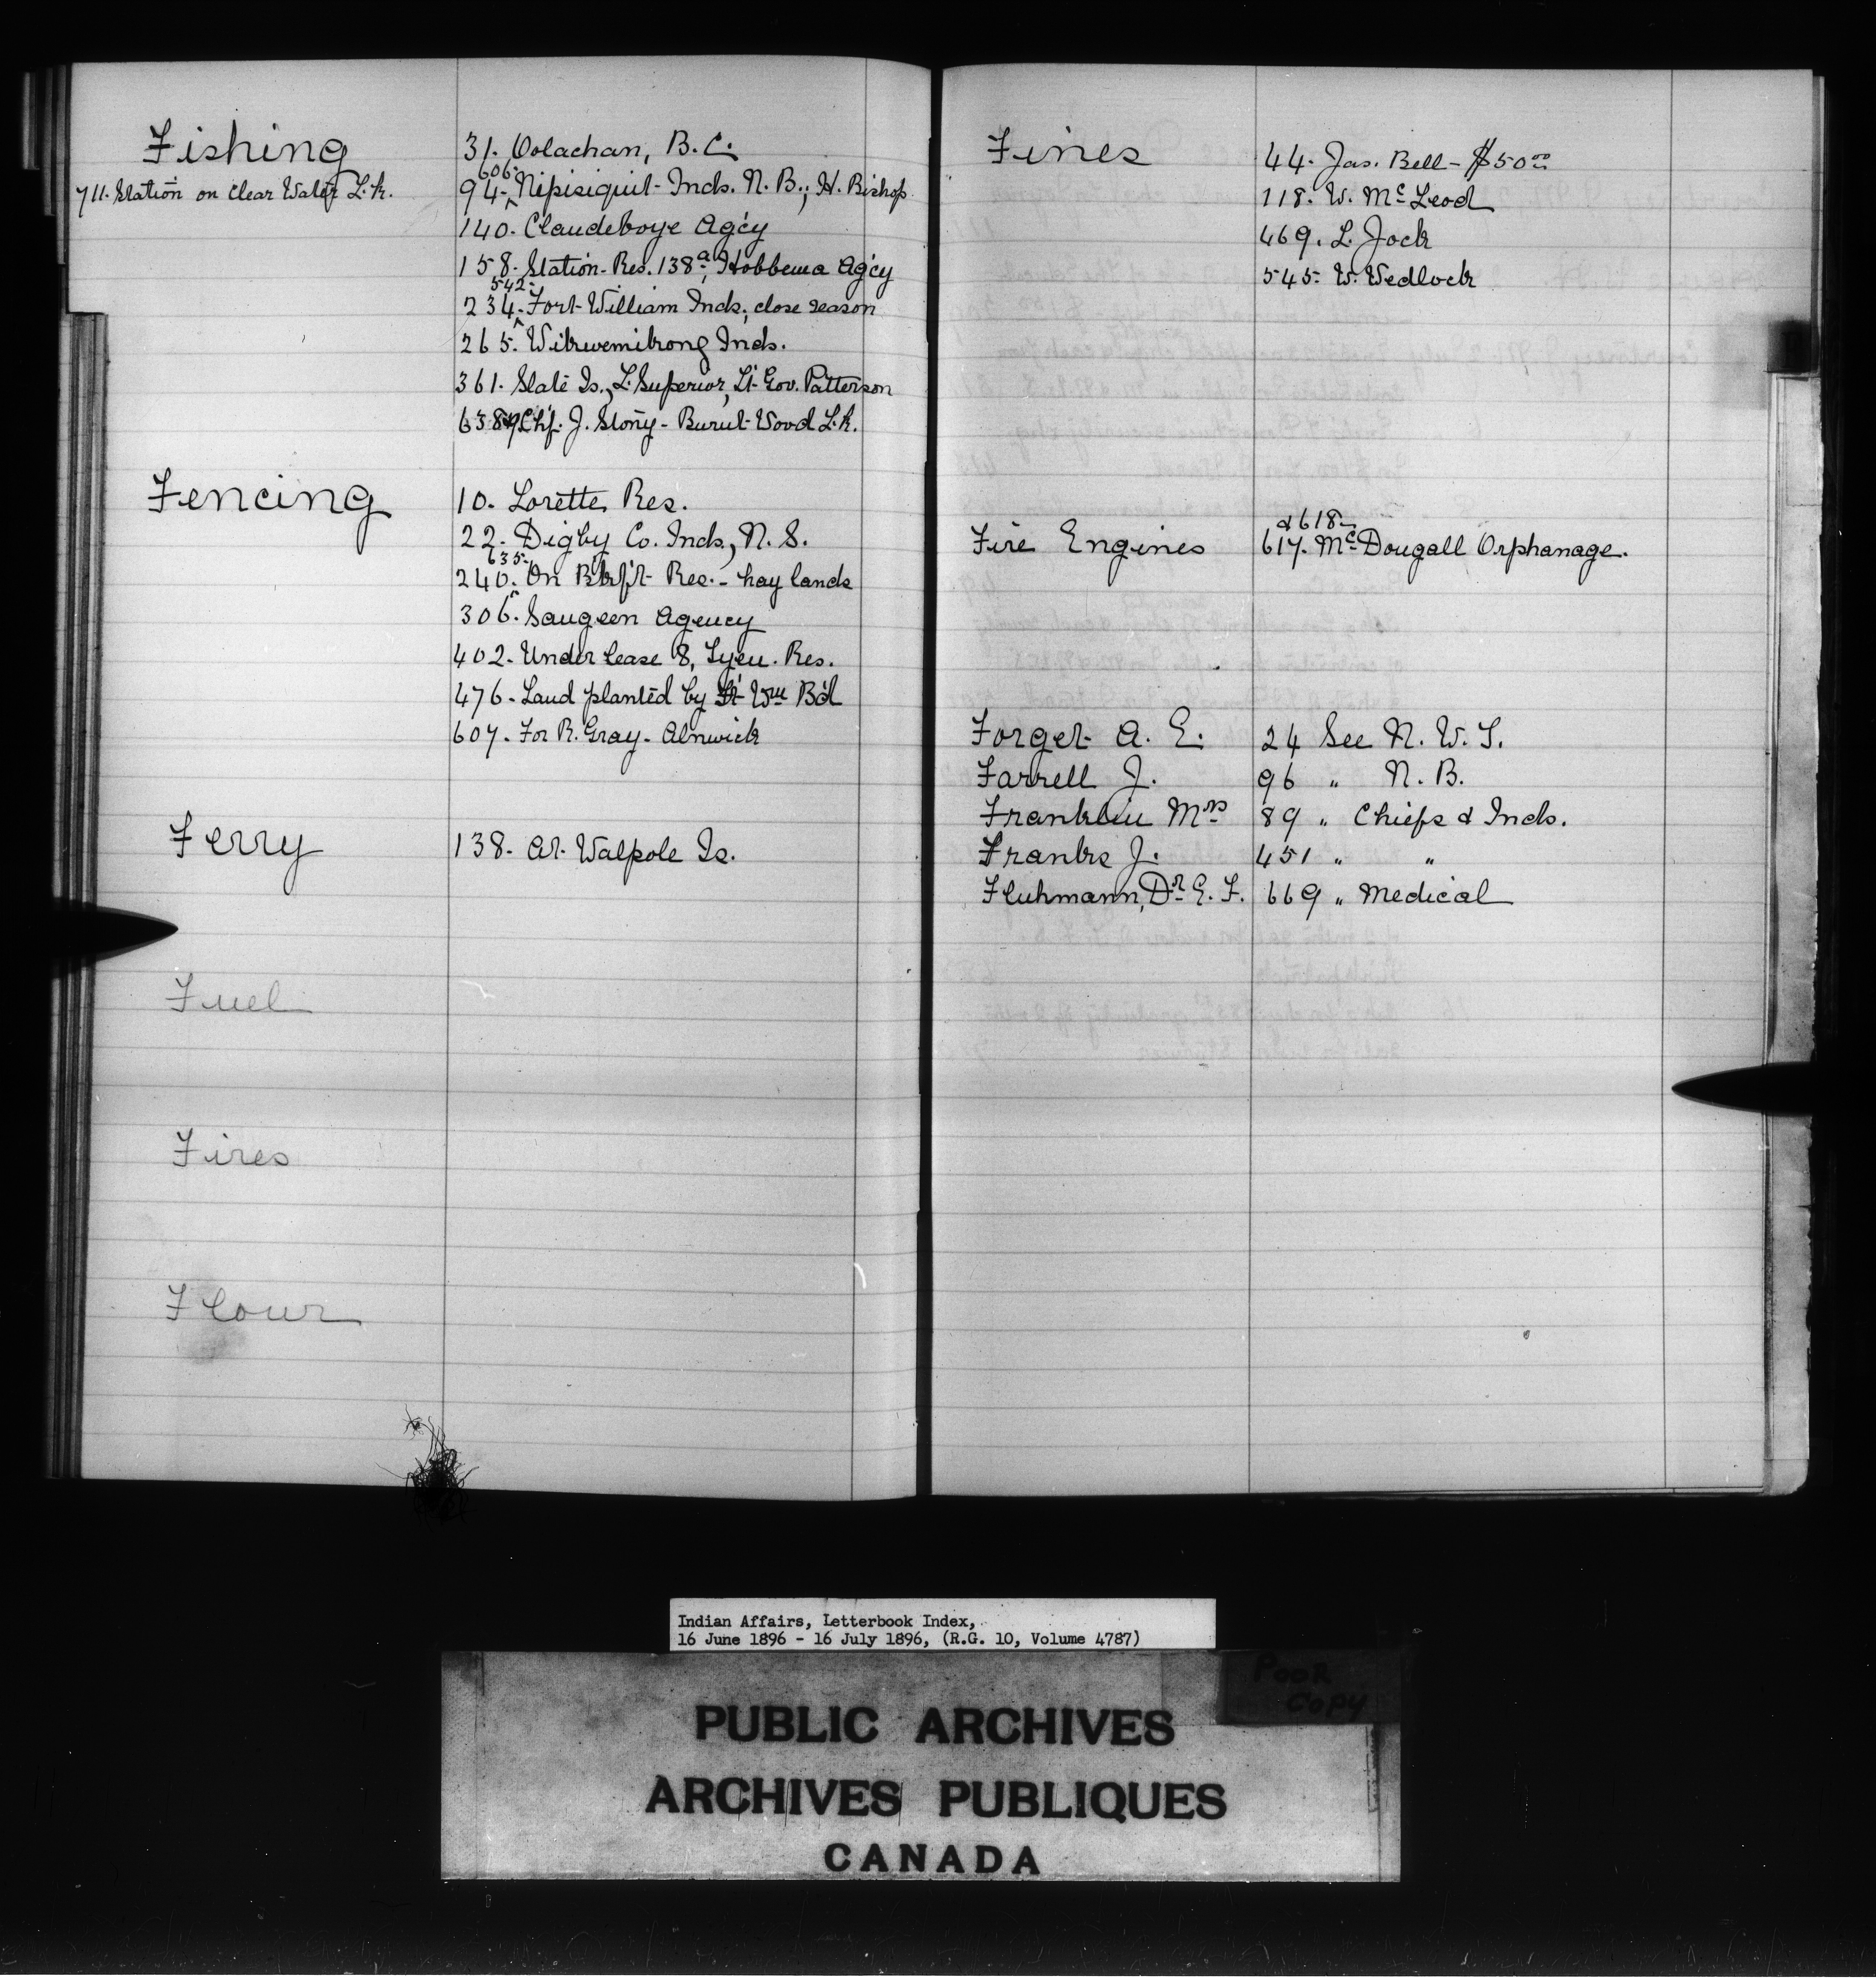 Fishing
711. Station on Clear Water Lk.
31. Oolachan, B.C.
606.
94. Nipisiquit Inds. N. B.; H. Bishop
140. Claudeboye Ag'cy
158. Station Res. 138a, Hobbema Ag'cy
542.
234. Fort William Inds, close season
265. Wikwemikong Inds.
361. Slate Is., L. Superior, Lt Gov. Patterson
Chf. J. Stony - Burnt Wood Lk.
Fencing
10. Lorette Res.
22. Digby Co. Inds., N. S.
635.
240. On Res. - hay lands
306. Saugeen Agency
402. Under lease 8, Tyen. Res.
476. Land planted by Ft Wm B'd
607. For R. Gray - Alnwick
Ferry
138. At Walpole Is.
Fuel
Fires
Flour
Fines
44. Jas. Bell - $50.00
118. W. McLeod
469. L. Jock
545. W. Wedlock
& 618
Fire Engines 617. McDougall Orphanage.
Forget A. E. 24 See N. W. T.
Farrell J. 96 " N. B.
Franklin Mrs 89 " Chiefs & Inds.
Franks J. 451 " "
Fluhmann, Dr E. F. 669 " Medical
Indian Affairs, Letterbook Index,
16 June 1896 - 16 July 1896, (R.G. 10, Volume 4787)
POOR
COPY
PUBLIC ARCHIVES
ARCHIVES PUBLIQUES
CANADA